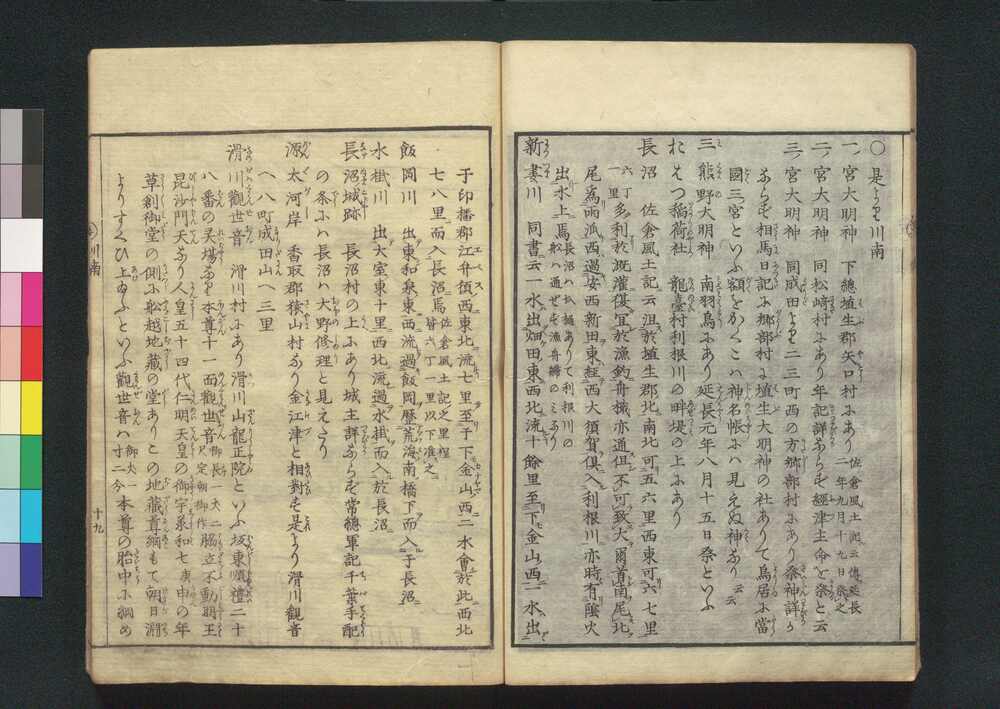 ○是より川南
一ノ宮大明神　下總埴生郡矢口村にあり佐倉風土記云傳延長二年九月十九日祭之
二ノ宮大明神　同松崎村にあり年記詳ならず經津主命を祭と云
三ノ宮大明神　同成田より二三町西の方郷部村にあり祭神詳か
ならず相馬日記に郷部村に埴生大明神の社ありて鳥居に當
國三宮といふ額をかくこは神名帳には見えぬ神なり云云
三熊野大明神　南羽鳥にあり延長元年八月十五日祭といふ
おもはつ稲荷社　龍臺村利根川の畔堤の上にあり
長沼　佐倉風土記云沮於埴生郡北南北可五六里西東可六七里
六丁一里多利於漑灌復宜於漁釣舟檝亦通但不可致大爾首南尾北
尾為両派西過安西新田東経西大須賀倶入利根川亦時有陰火
出水上焉長沼ハ圦樋ありて利根川の船ハ通せず漁舟等のミなり
新妻川　同書云一水出畑田東西北流十餘里至下金山西一水出
于印播郡江弁須西東北流七里至于下金山西二水會於此西北
七八里而入長沼焉佐倉風土記之里程皆六丁一里以下准之
飯岡川　出東和泉東西流過飯岡歴荒海南橋下而入于長沼
水掛川　出大室東十里西北流過水掛而入於長沼
長沼城跡　長沼村の上にあり城主詳ならず常總軍記千葉手配
の条にハ長沼ハ大野修理と見えたり
源太河岸　香取郡猿山村なり金江津と相對す是より滑川觀音
へ八町成田山へ三里
滑川觀世音　滑川村にあり滑川山龍正院といふ坂東順禮二十
八番の灵場なり本尊十一面觀世音御長一丈二尺定朝御作脇立不動明王
昆沙門天なり人皇五十四代仁明天皇の御宇承和七庚申の年
草創御堂の側に船越地藏の堂ありこの地藏尊綱もて朝日淵
よりすくひ上給ふといふ觀世音ハ御丈一寸二分本尊の胎中に納め
川南
十九